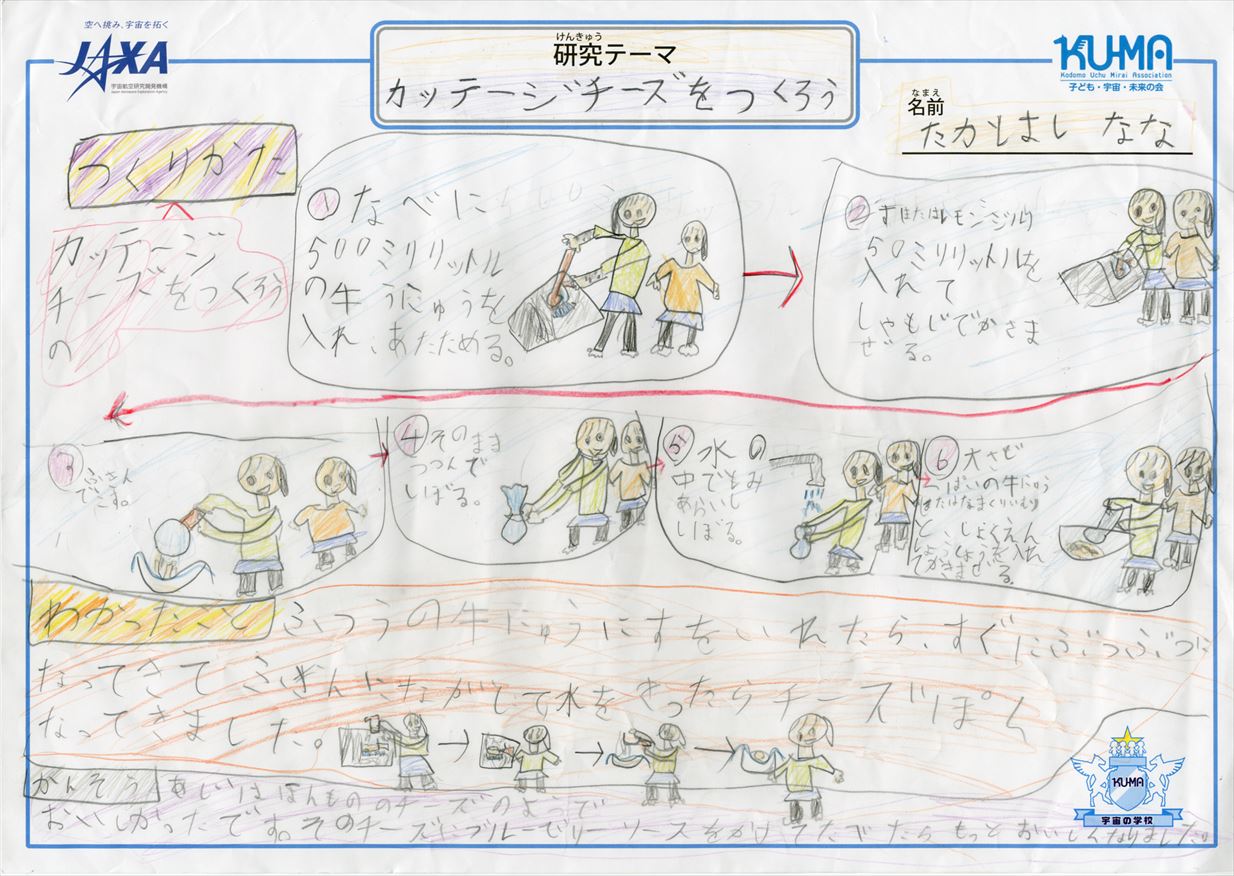 空へ挑み、宇宙を拓く
JAXA
宇宙航空研究開発機構
Japan Aerospace Exploration Agency
けんきゅう
研究テーマ
カッテージチーズをつくろう
KU-MA
Kodomo Uchu Mirai Association
子ども・宇宙・未来の会
なまえ
名前
たかはし なな
つくりかた
カッテージ
チーズをつくろう
の
1 なべに
500ミリリットル
の牛にゅうを
入れ、あたためる。
2 すまたはレモンジル
50ミリリットルを
入れて
しゃもじでかきま
ぜる。
3 ふきん
でこす。
4 そのまま
つつんで
しぼる。
5 水の
中でもみ
あらいし
しぼる。
6 大さじ
ぱいの牛にゅう
またはなまくりいむ
と、しょくえん
しょうしょうを入れ
てかきまぜる。
わかったこと ふつうの牛にゅうにすをいれたら、すぐにぶつぶつに
なってきて ふきんにながして水をきったらチーズぽく
なってきました。
かんそう あじはほんもののチーズのようで
おいしかったです。そのチーズにブルーベリーソースをかけてたべたらもっとおいしくなりました。
KU-MA
宇宙の学校